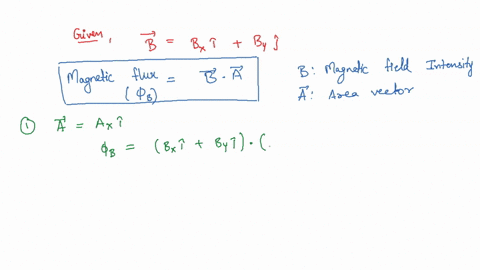 Given, B⃗ = Bx î + By ĵ
Magnetic flux = B⃗ · A⃗
(ΦB)
B: Magnetic field Intensity
A⃗: Area vector
① A⃗ = Ax î
ΦB = (Bx î + By ĵ) · (.